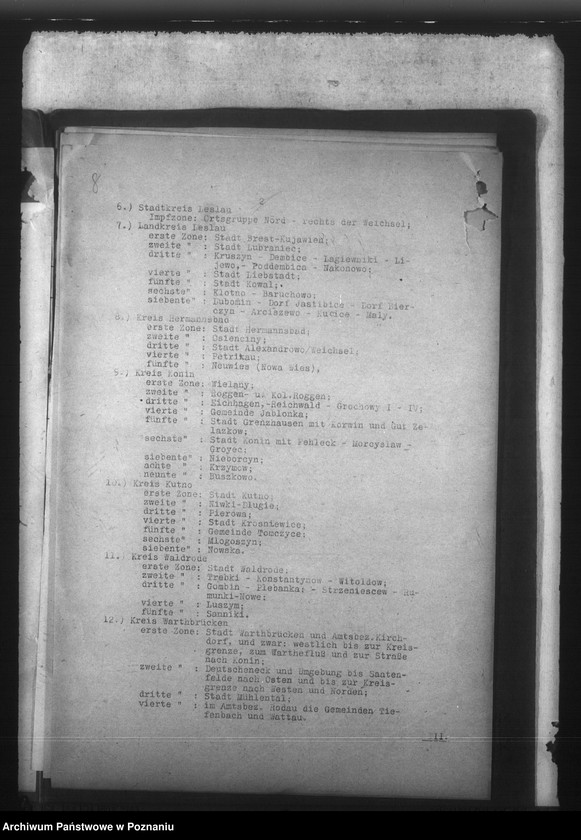 8
2
6.) Stadtkreis Leslau
Impfzone: Ortsgruppe Nord - rechts der Weichsel;
7.) Landkreis Leslau
erste Zone: Stadt Brest-Kujawien;
zweite " : Stadt Lubraniec;
dritte " : Kruszyn - Dembice - Lagiewniki - Li-
jewo,- Poddembice - Nakonowo;
vierte " : Stadt Liebstadt;
fünfte " : Stadt Kowal;
sechste" : Klotno - Baruchowo;
siebente" : Lubonia - Dorf Jastibice - Dorf Bier-
czyn - Arciszewo - Kucice - Maly.
8.) Kreis Hermannsbad
erste Zone: Stadt Hermannsbad;
zweite " : Osienciny;
dritte " : Stadt Alexandrowo/Weichsel;
vierte " : Petrikau;
fünfte " : Neuwies (Nowa Wies),
9.) Kreis Konin
erste Zone: Wielany;
zweite " : Roggen- u. Kol.Roggen;
dritte " : Eichhagen,-Reichwald - Grochowy I - IV;
vierte " : Gemeinde Jablonka;
fünfte " : Stadt Grenzhausen mit Korwin und Gut Ze-
lazkow;
sechste" : Stadt Konin mit Pehleck - Morcyslaw -
Groyec;
siebente" : Nieborcyn;
achte " : Krzymow;
neunte " : Ruszkowo.
10.) Kreis Kutno
erste Zone: Stadt Kutno;
zweite " : Niwki-Dlugie;
dritte " : Pierowa;
vierte " : Stadt Krosniewice;
fünfte " : Gemeinde Tomczyce;
sechste" : Mlogoszyn;
siebente" : Nowska.
11.) Kreis Waldrode
erste Zone: Stadt Waldrode;
zweite " : Trebki - Konstantynow - Witoldow;
dritte " : Gombin - Plebanka; - Strzeniescew - Ru-
munki-Nowe;
vierte " : Luszym;
fünfte " : Sanniki.
12.) Kreis Warthbrücken
erste Zone: Stadt Warthbrücken und Amtsbez.Kirch-
dorf, und zwar: westlich bis zur Kreis-
grenze, zum Warthefluß und zur Straße
nach Konin;
zweite " : Deutscheneck und Umgebung bis Santen-
felde nach Osten und bis zur Kreis-
grenze nach Westen und Norden;
dritte " : Stadt Mühlental;
vierte " : im Amtsbez. Rodau die Gemeinden Tie-
fenbach und Wattau.
Archiwum Państwowe w Poznaniu